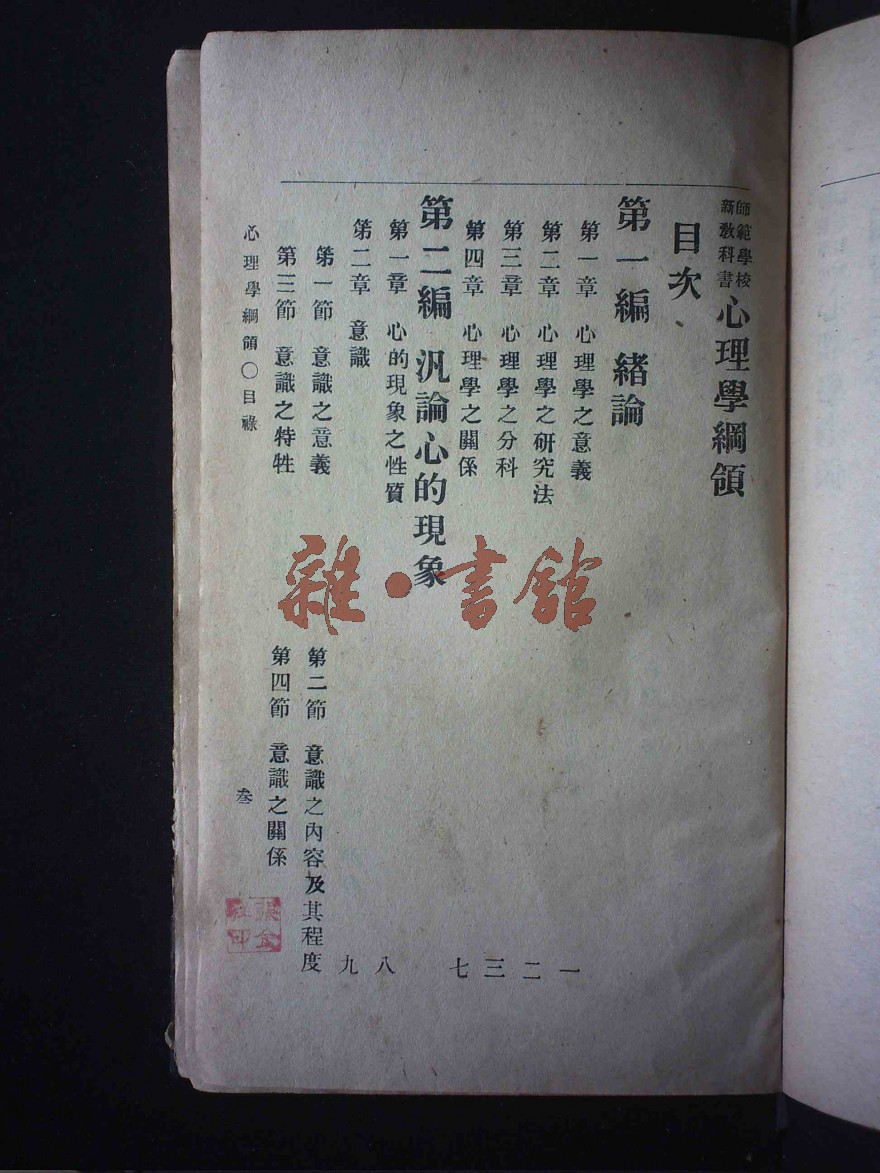 師範學校
新教科書
心理學綱領
目次
第一編 緒論
第一章 心理學之意義 一
第二章 心理學之研究法 二
第三章 心理學之分科 三
第四章 心理學之關係 七
第二編 汎論心的現象
第一章 心的現象之性質 八
第二章 意識 九
第一節 意識之意義 第二節 意識之內容及其程度
第三節 意識之特性 第四節 意識之關係
心理學綱領〇目祿 叄
雜·書館